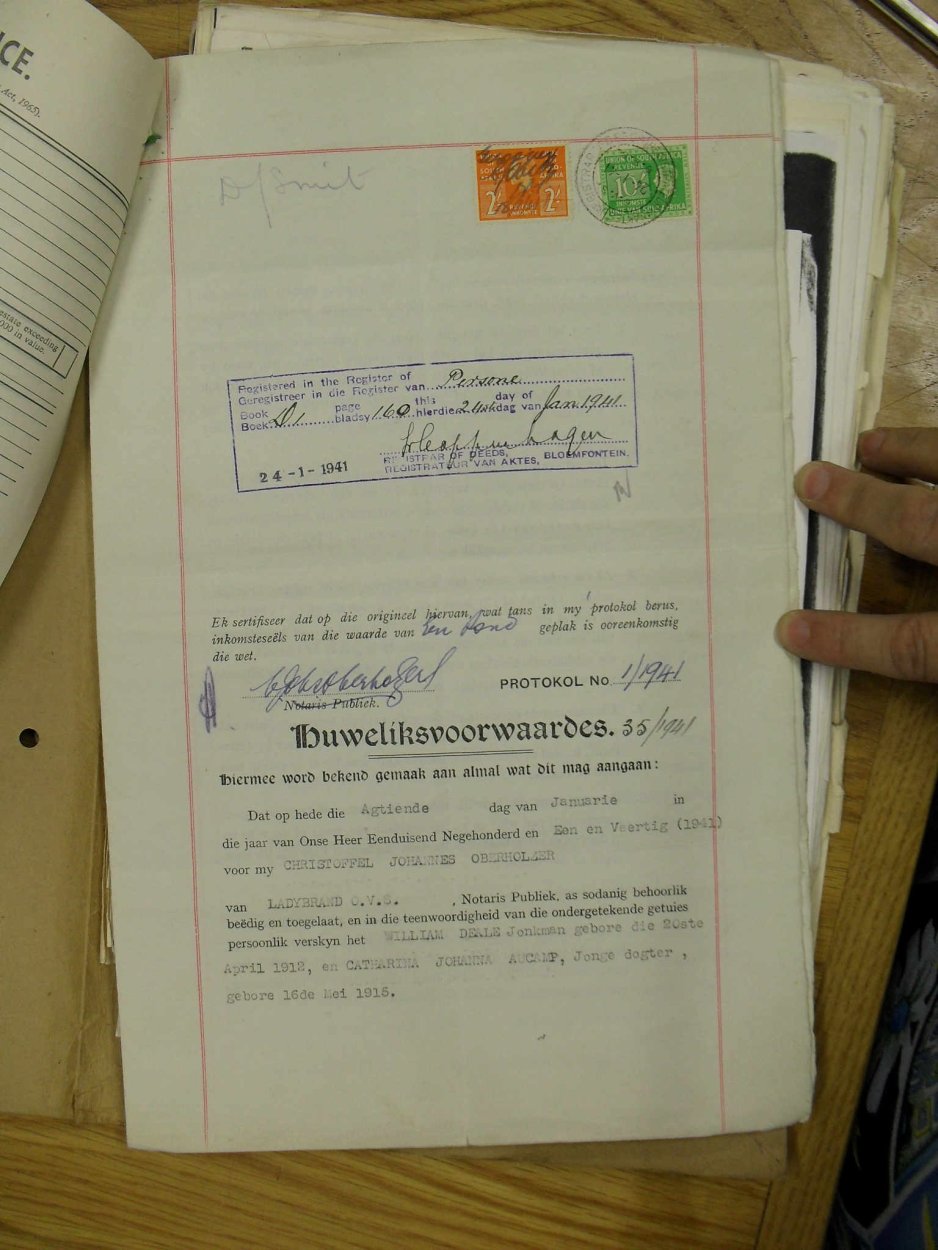 CE.
Act, 1965).
estate exceeding
000 in value.
D/Smit
UNION OF SOUTH AFRICA
REVENUE
10/-
INKOMSTE
UNIE VAN SUID-AFRIKA
2/- REVENUE INKOMSTE 2/-
Registered in the Register of
Geregistreer in die Register van Persone
Book page this day of
Boek D1 bladsy 160 hierdie 24ste dag van Jan 1941
REGISTRAR OF DEEDS,
REGISTRATEUR VAN AKTES, BLOEMFONTEIN.
24-1-1941
Ek sertifiseer dat op die origineel hiervan, wat tans in my protokol berus,
inkomsteseëls van die waarde van Een Pond geplak is ooreenkomstig
die wet.
CJ Oberholzer
Notaris Publiek.
PROTOKOL No. 1/1941
Huweliksvoorwaardes. 35/1941
Hiermee word bekend gemaak aan almal wat dit mag aangaan:
Dat op hede die Agtiende dag van Januarie in
die jaar van Onse Heer Eenduisend Negehonderd en Een en Veertig (1941)
voor my CHRISTOFFEL JOHANNES OBERHOLZER
van LADYBRAND O.V.S. , Notaris Publiek, as sodanig behoorlik
beëdig en toegelaat, en in die teenwoordigheid van die ondergetekende getuies
persoonlik verskyn het WILLIAM DEALE Jonkman gebore die 20ste
April 1912, en CATHARINA JOHANNA AUCAMP, Jonge dogter ,
gebore 16de Mei 1915.